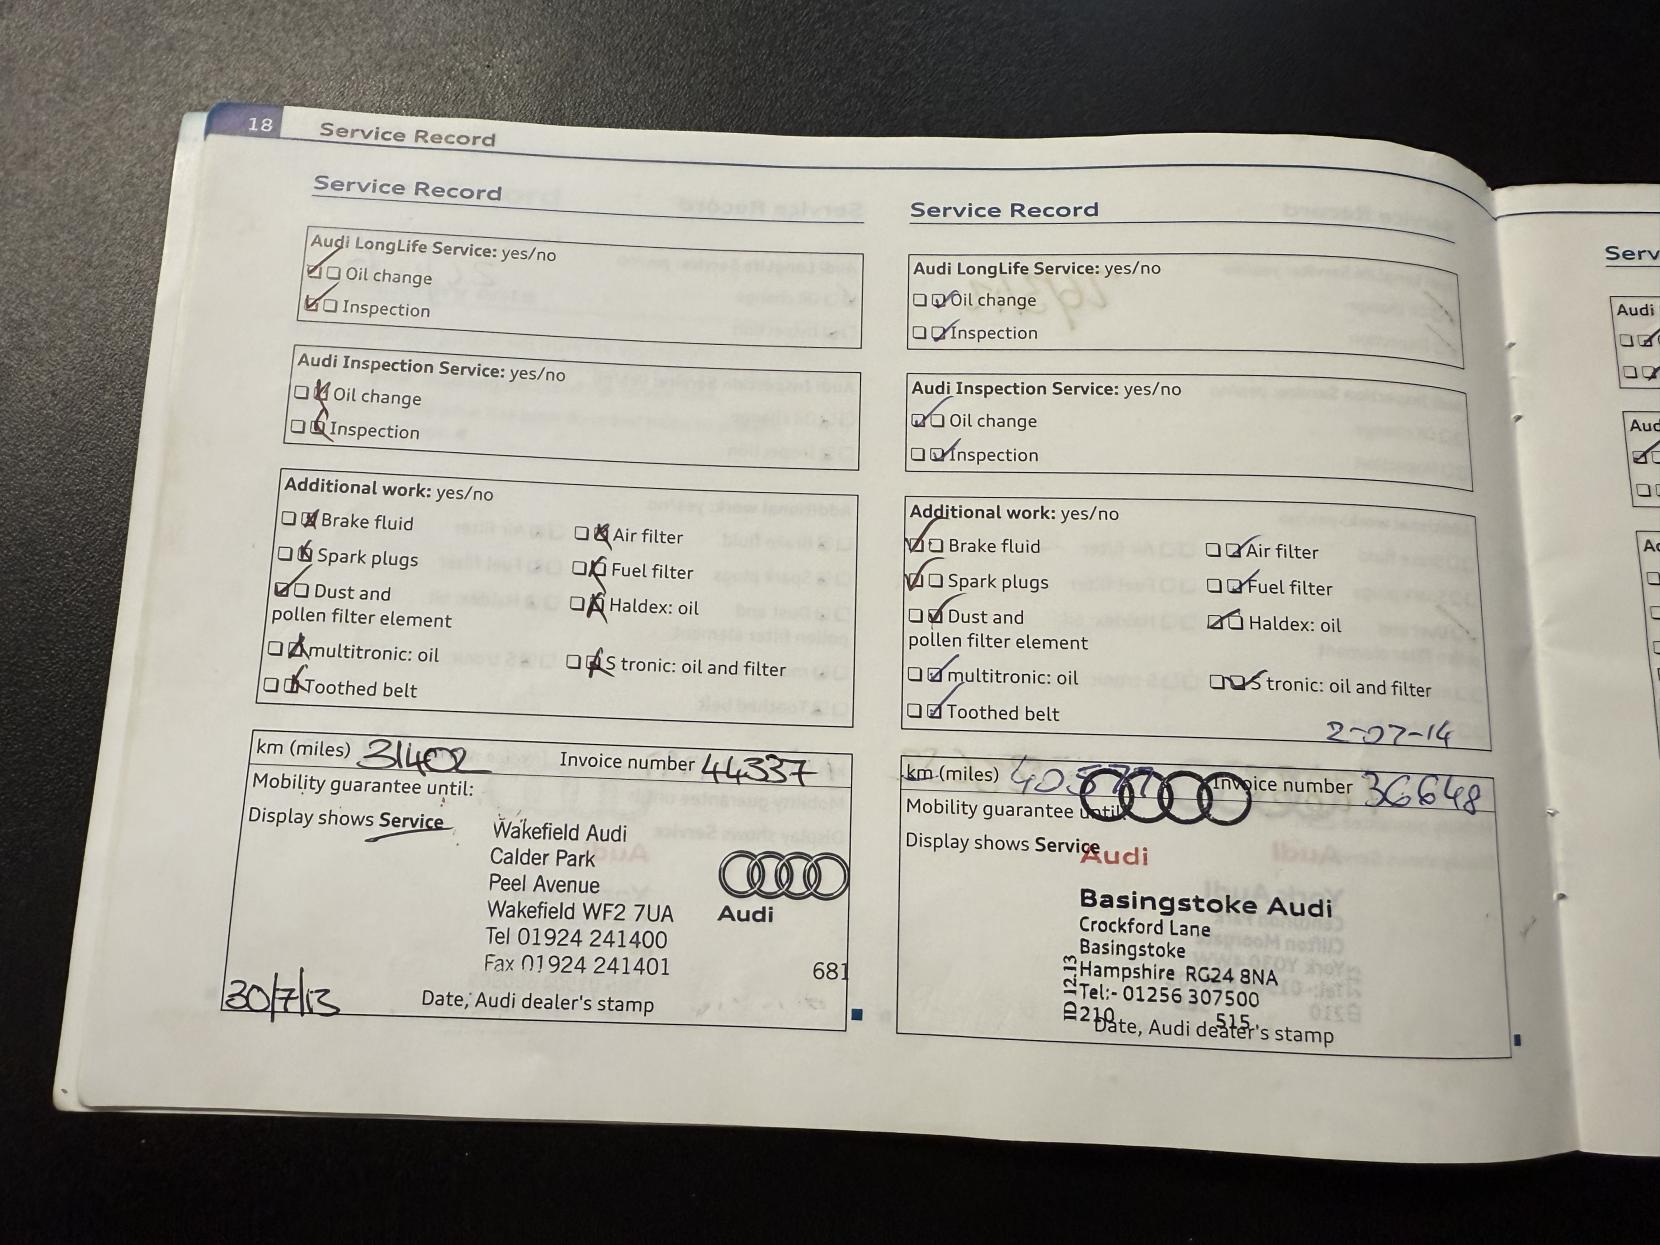 18 Service Record
Service Record
Audi LongLife Service: yes/no
Oil change
Inspection
Audi Inspection Service: yes/no
Oil change
Inspection
Additional work: yes/no
Brake fluid
Air filter
Spark plugs
Fuel filter
Dust and
pollen filter element
Haldex: oil
multitronic: oil
S tronic: oil and filter
Toothed belt
km (miles) 31402 Invoice number 44337
Mobility guarantee until:
Display shows Service
Wakefield Audi
Calder Park
Peel Avenue
Wakefield WF2 7UA
Tel 01924 241400
Fax 01924 241401
Audi
681
30/7/13
Date, Audi dealer's stamp
Service Record
Audi LongLife Service: yes/no
Oil change
Inspection
Audi Inspection Service: yes/no
Oil change
Inspection
Additional work: yes/no
Brake fluid
Air filter
Spark plugs
Fuel filter
Dust and
pollen filter element
Haldex: oil
multitronic: oil
S tronic: oil and filter
Toothed belt
2-07-14
km (miles) Invoice number 36648
Mobility guarantee until:
Display shows Service
Audi
Basingstoke Audi
Crockford Lane
Basingstoke
Hampshire RG24 8NA
Tel:- 01256 307500
210 515
ID 12-13
Date, Audi dealer's stamp
Serv
Audi
Aud